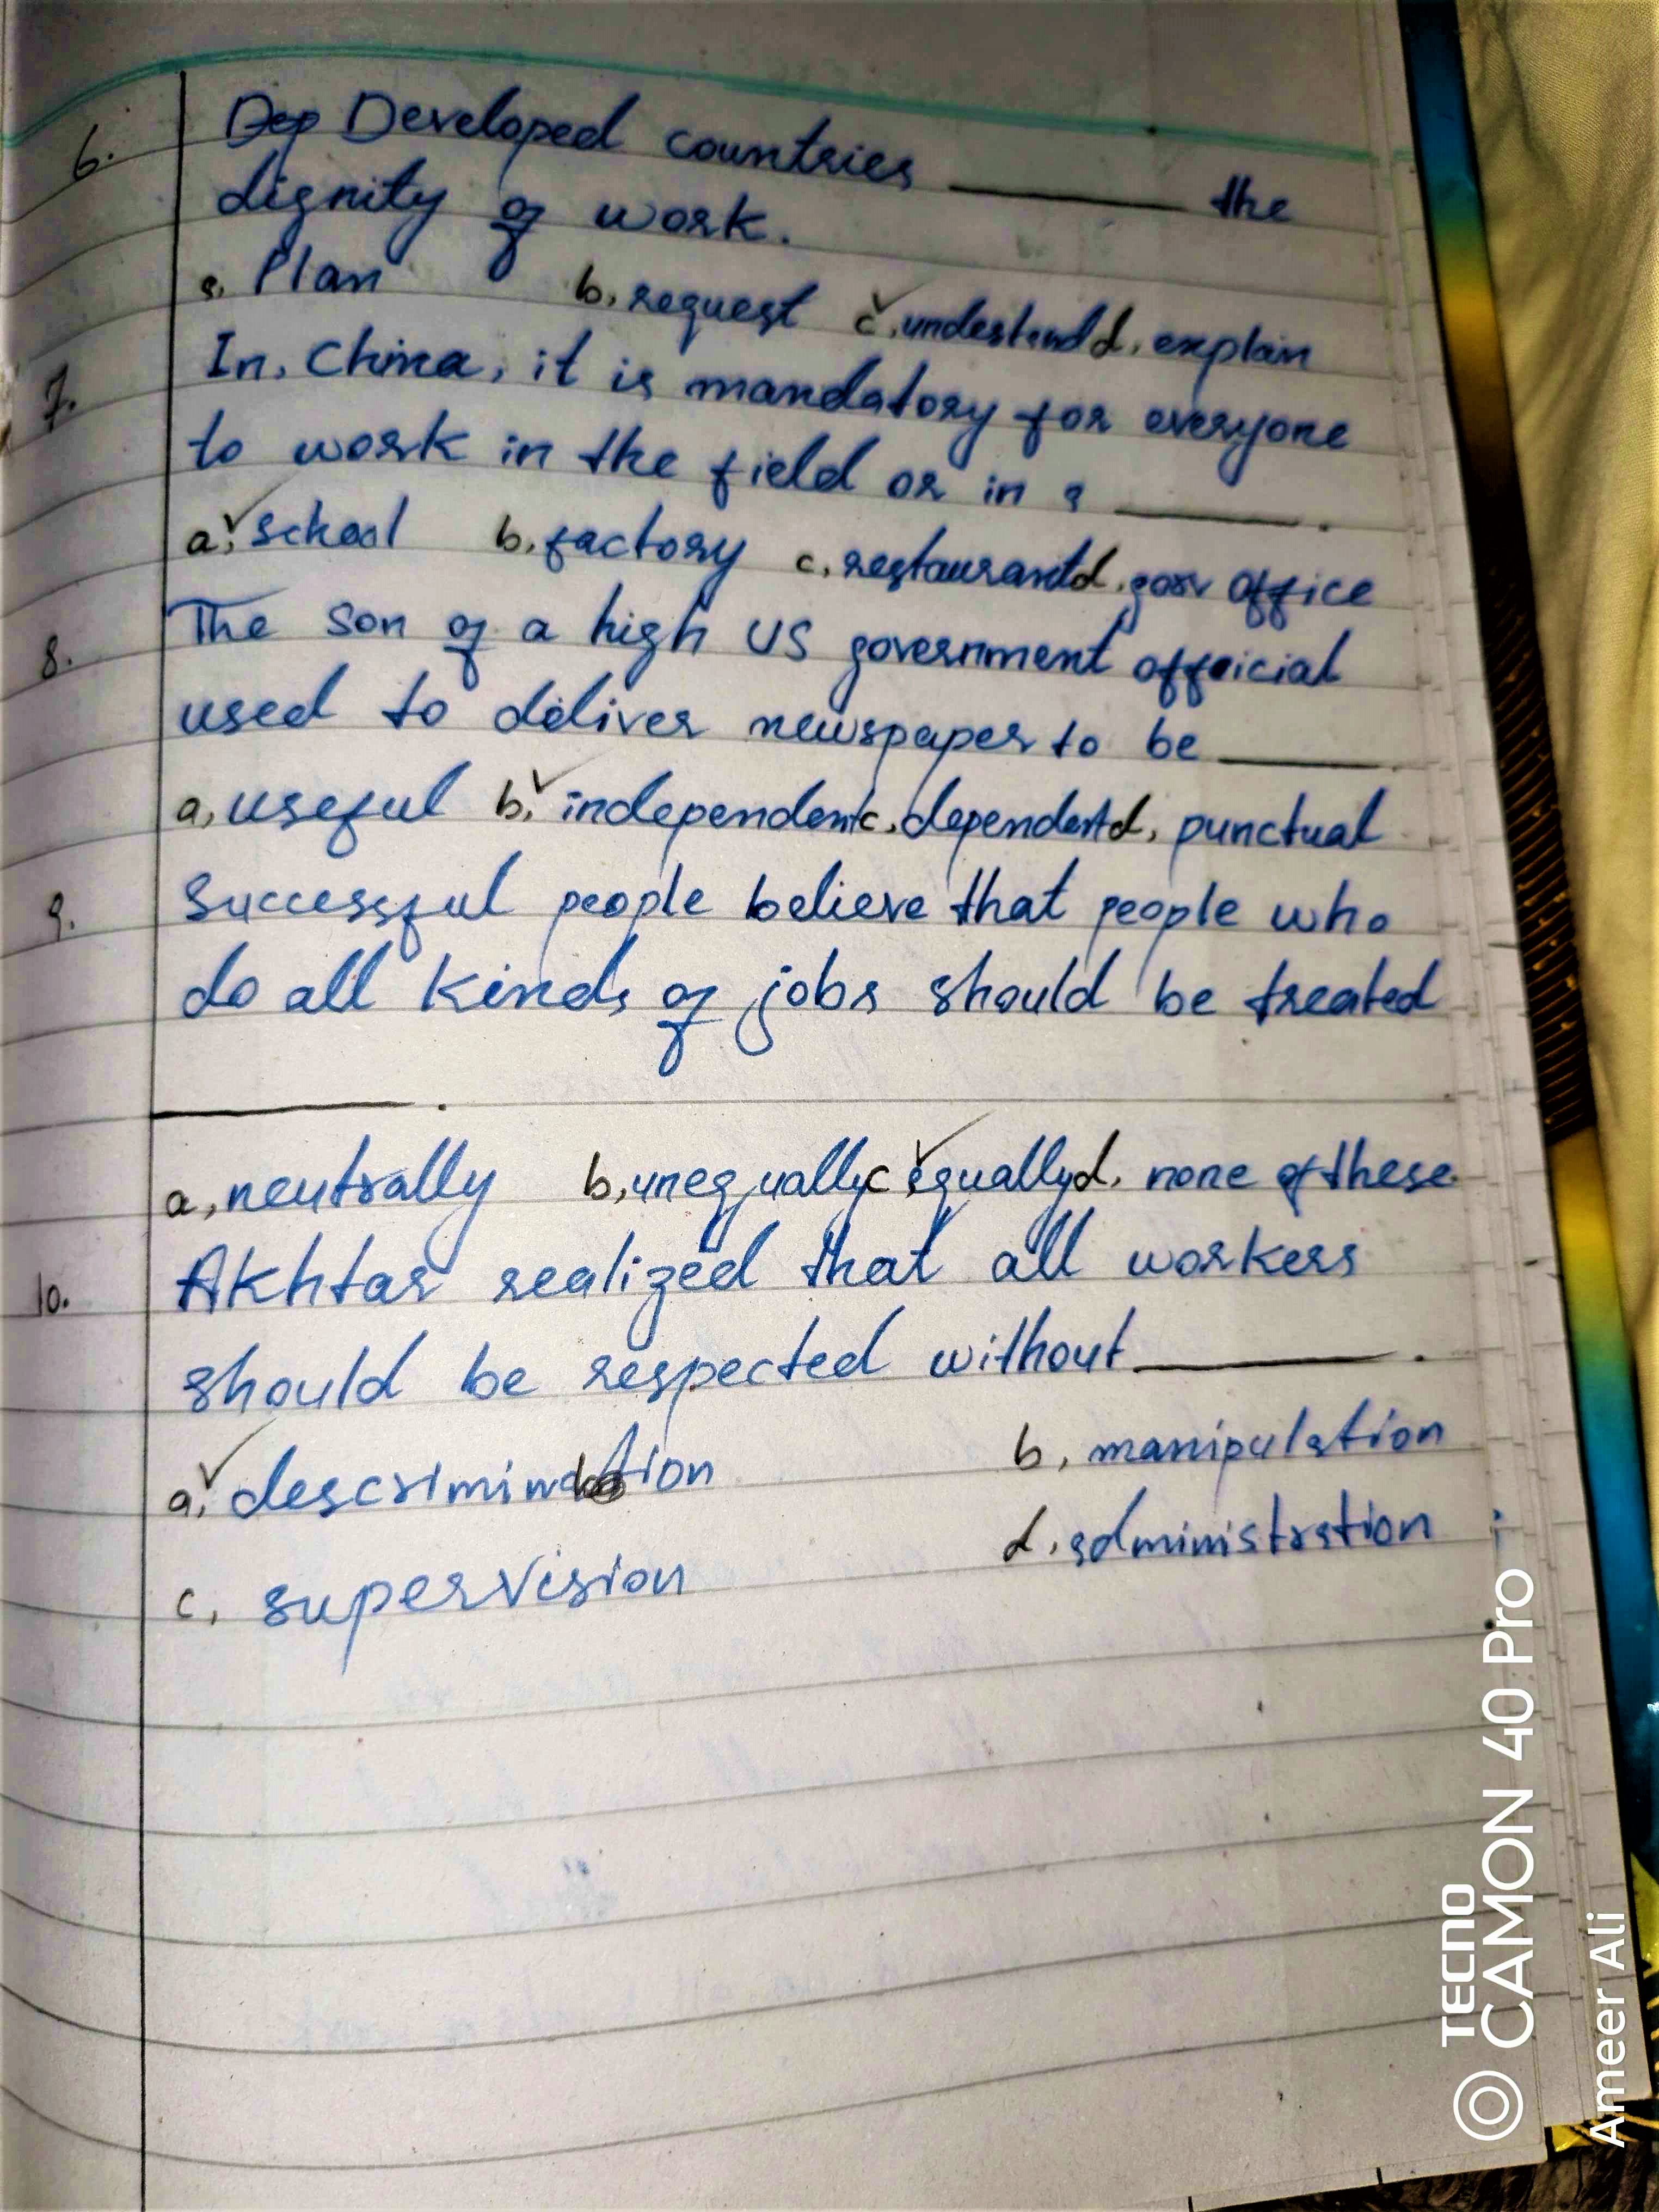 6. Dep Developed countries ______ the
dignity of work.
a. Plan b, request c, undestand d, explain
7. In, China, it is mandatory for everyone
to work in the field or in a ______.
a, school b, factory c, restaurant d, gosv office
8. The son of a high US government offoicial
used to deliver newspaper to be ______.
a, useful b, independent c, dependent d, punctual
9. Successful people believe that people who
do all kinds of jobs should be treated
______.
a, neutrally b, unequally c equally d, none of these.
10. Akhtar realized that all workers
should be respected without ______.
a, descrimination b, manipulation
c, supervision d, administration
TECNO
CAMON 40 Pro
Ameer Ali